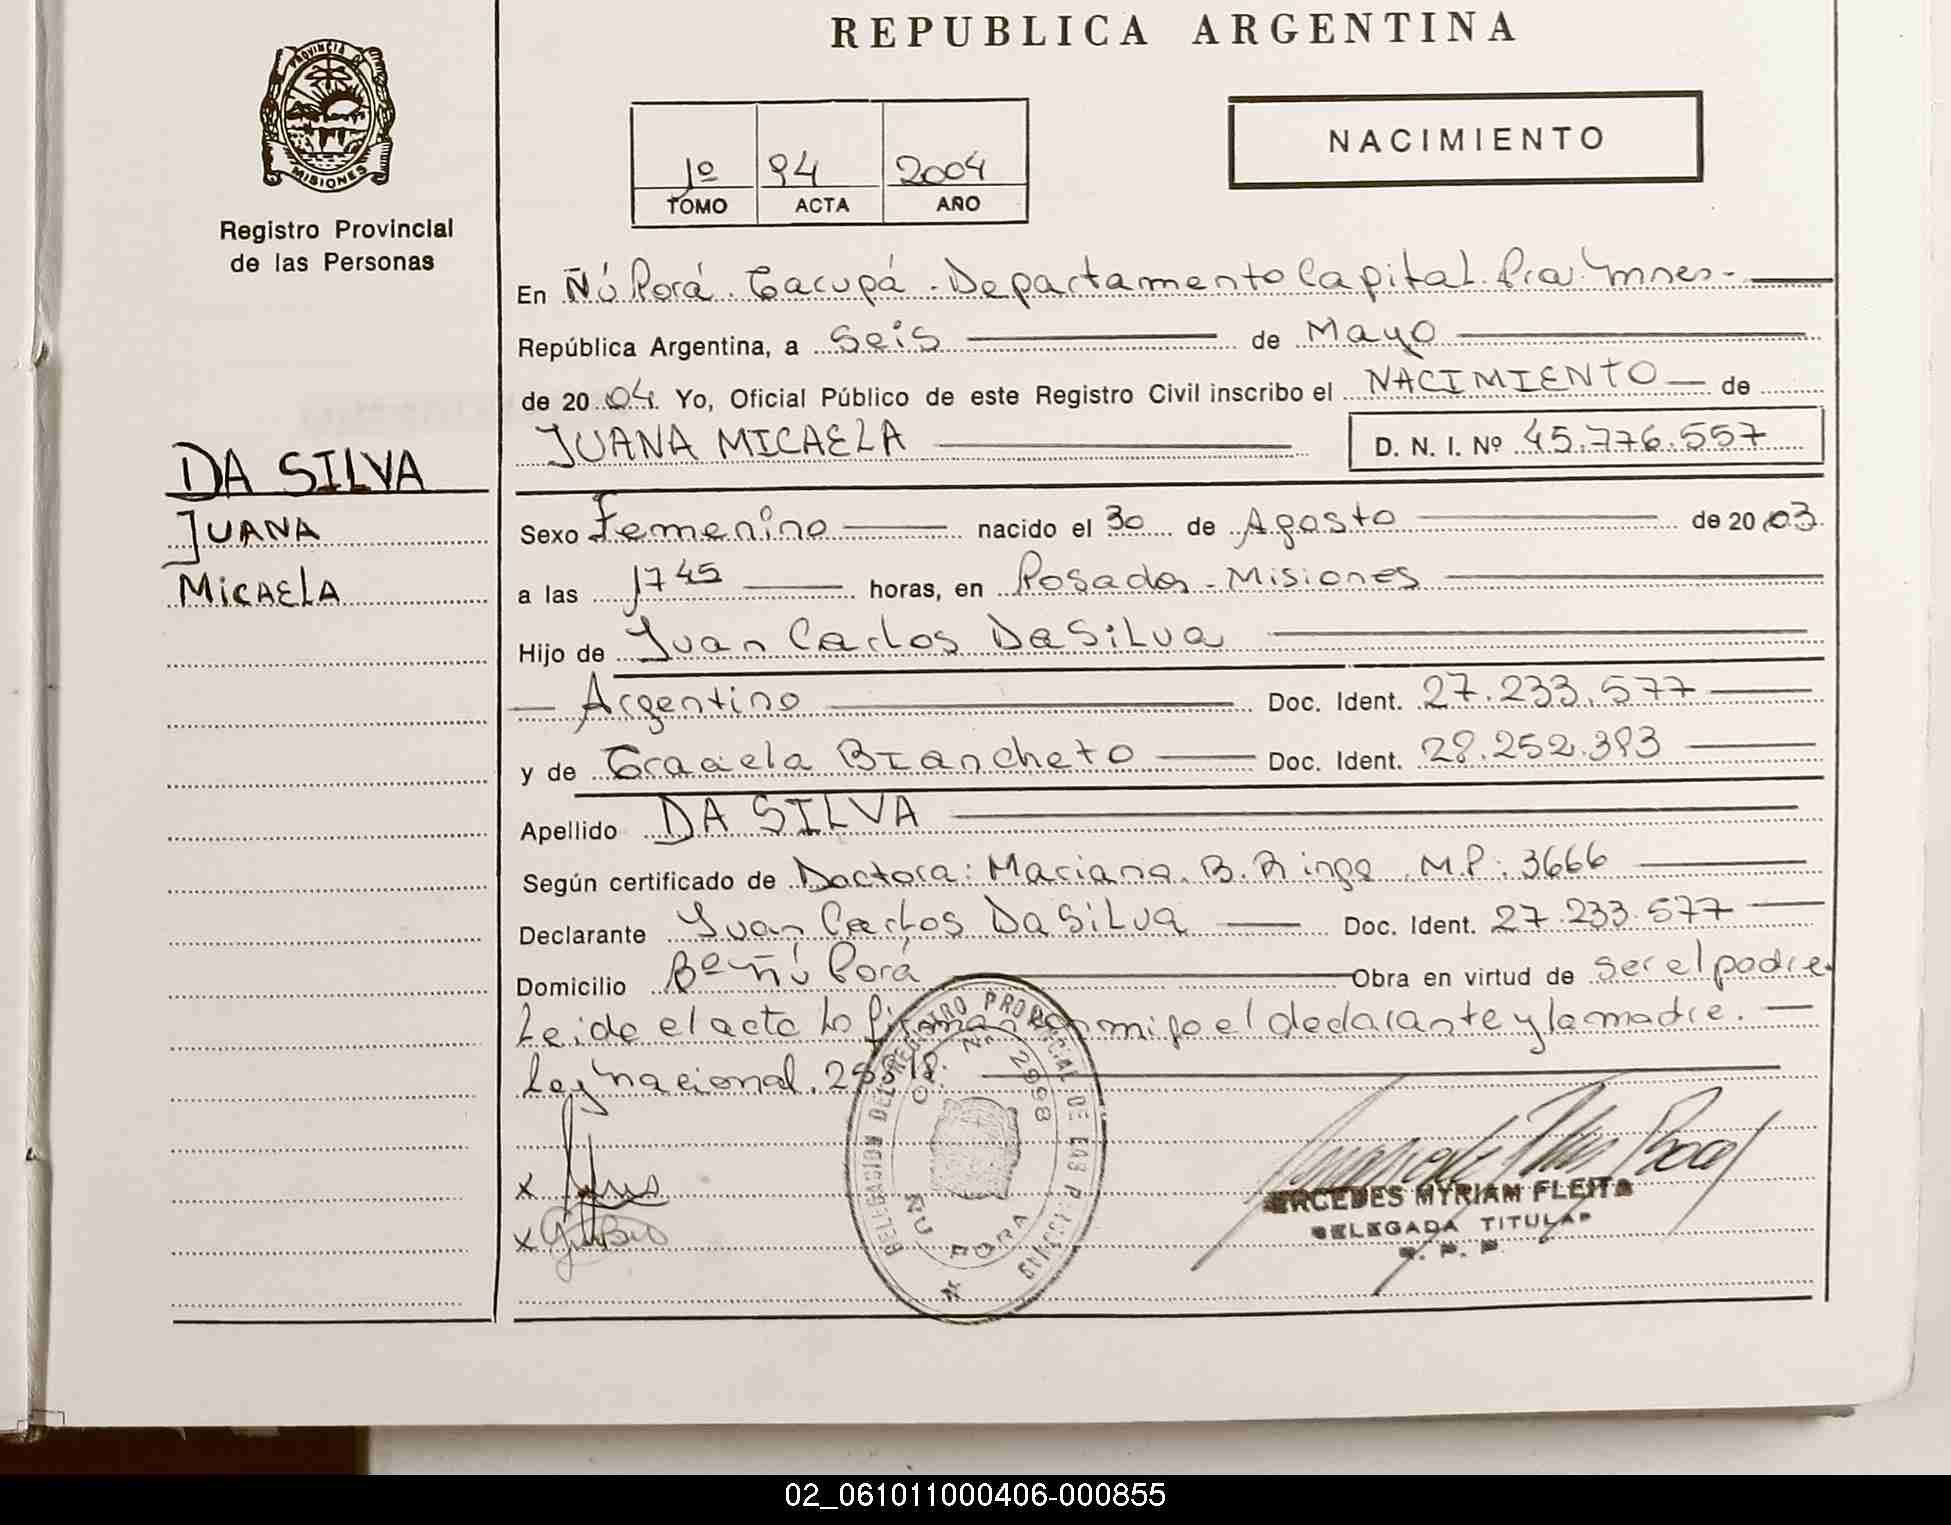 REPUBLICA ARGENTINA
PROVINCIA DE
MISIONES
Registro Provincial
de las Personas
NACIMIENTO
1º 94 2004
TOMO ACTA AÑO
En Ñú Porá. Garupá. Departamento Capital. Pcia. Mnes.
República Argentina, a Seis de Mayo
de 2004. Yo, Oficial Público de este Registro Civil inscribo el NACIMIENTO de
JUANA MICAELA D. N. I. Nº 45.776.557
DA SILVA
JUANA
MICAELA
Sexo Femenino nacido el 30 de Agosto de 20 03
a las 1745 horas, en Posadas - Misiones
Hijo de Juan Carlos Da Silva
Argentino Doc. Ident. 27.233.577
y de Graciela Biancheto Doc. Ident. 28.252.383
Apellido DA SILVA
Según certificado de Doctora: Mariana. B. M.P: 3666
Declarante Juan Carlos Da Silva Doc. Ident. 27.233.577
Domicilio Bº Ñú Porá Obra en virtud de ser el padre.
Leida el acta lo firman conmigo el declarante y la madre.
Ley nacional.
DELEGACION DEL REGISTRO PROVINCIAL DE LAS PERSONAS
Nº 2998
ÑU PORA
x
x
MERCEDES MYRIAM FLEITA
DELEGADA TITULAR
R. P. P.
02_061011000406-000855